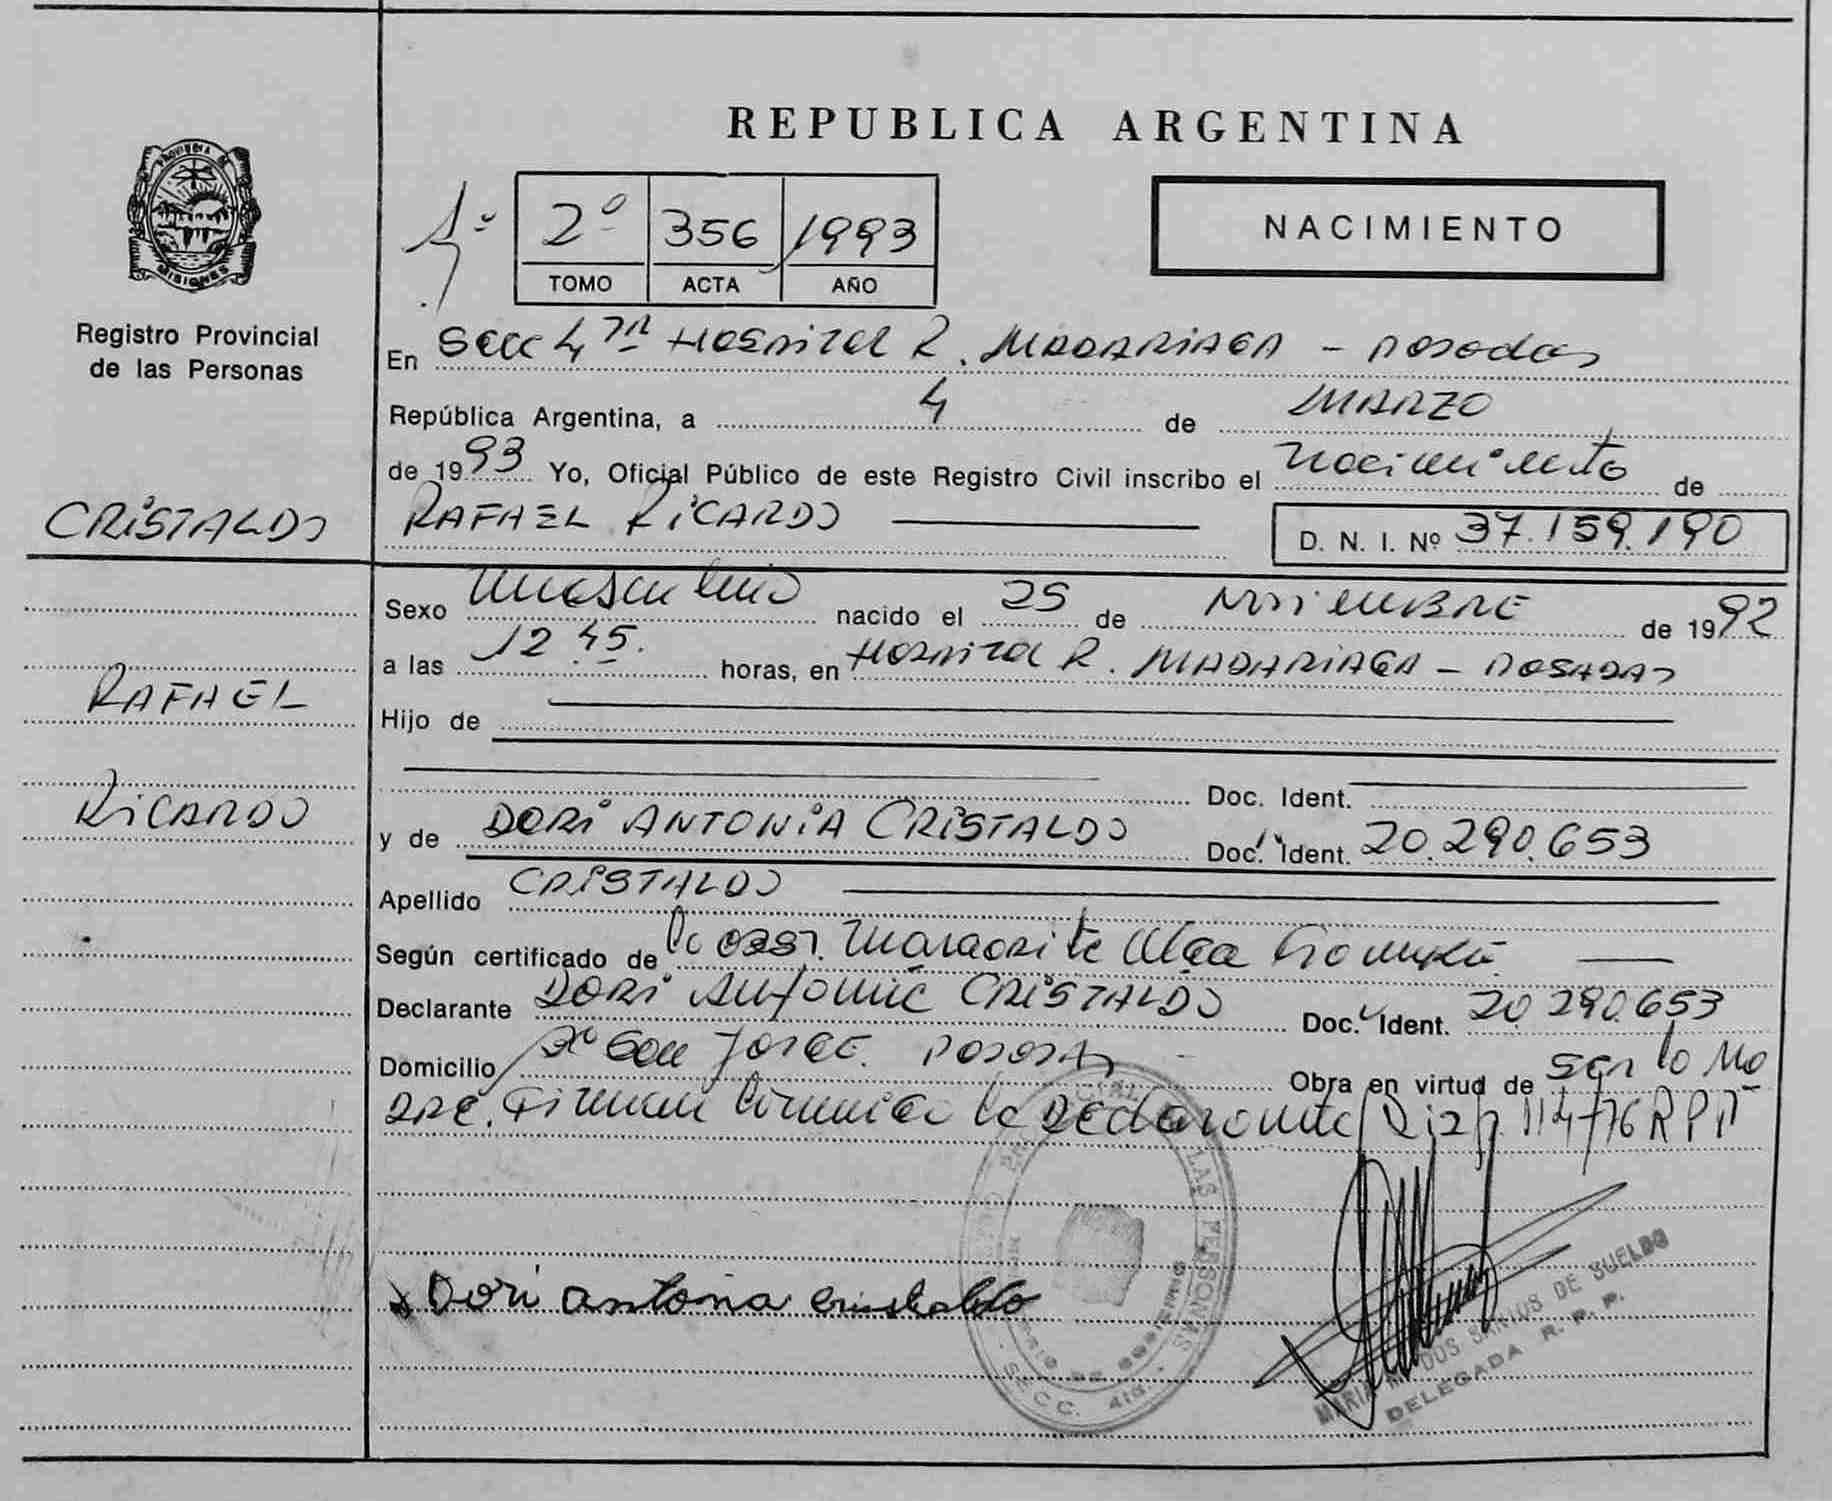 REPUBLICA ARGENTINA
PROVINCIA DE
MISIONES
Registro Provincial
de las Personas
2º 356 1993
TOMO ACTA AÑO
NACIMIENTO
En Secc 4ta Hospital R. MADARIAGA - Posadas
República Argentina, a 4 de MARZO
de 1993 Yo, Oficial Público de este Registro Civil inscribo el nacimiento de
CRISTALDO
RAFAEL RICARDO
D. N. I. Nº 37.159.190
Sexo masculino nacido el 25 de NOViEMBRE de 1992
a las 12 45. horas, en Hospital R. MADARIAGA - POSADAS
RAFAEL
Hijo de
Doc. Ident.
RICARDO
y de DORI ANTONIA CRISTALDO Doc. Ident. 20.290.653
Apellido CRISTALDO
Según certificado de
Declarante DORI Antonia CRISTALDO Doc. Ident. 20.290.653
Domicilio JORGE. POSADAS Obra en virtud de ser la Ma
DRE. Firman la Declarante Disp. 114/76 R P P
Dori antonia cristaldo
LAS PERSONAS
SECC. 4ta.
DOS SANTOS DE SUELDO
DELEGADA R. P. P.